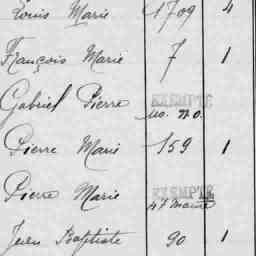 Louis Marie 1709 4
François Marie 7 1
Gabriel Pierre EXEMPTÉ
no. no.
Pierre Marie 159 1
Pierre Marie EXEMPTÉ
Jean Baptiste 90 1